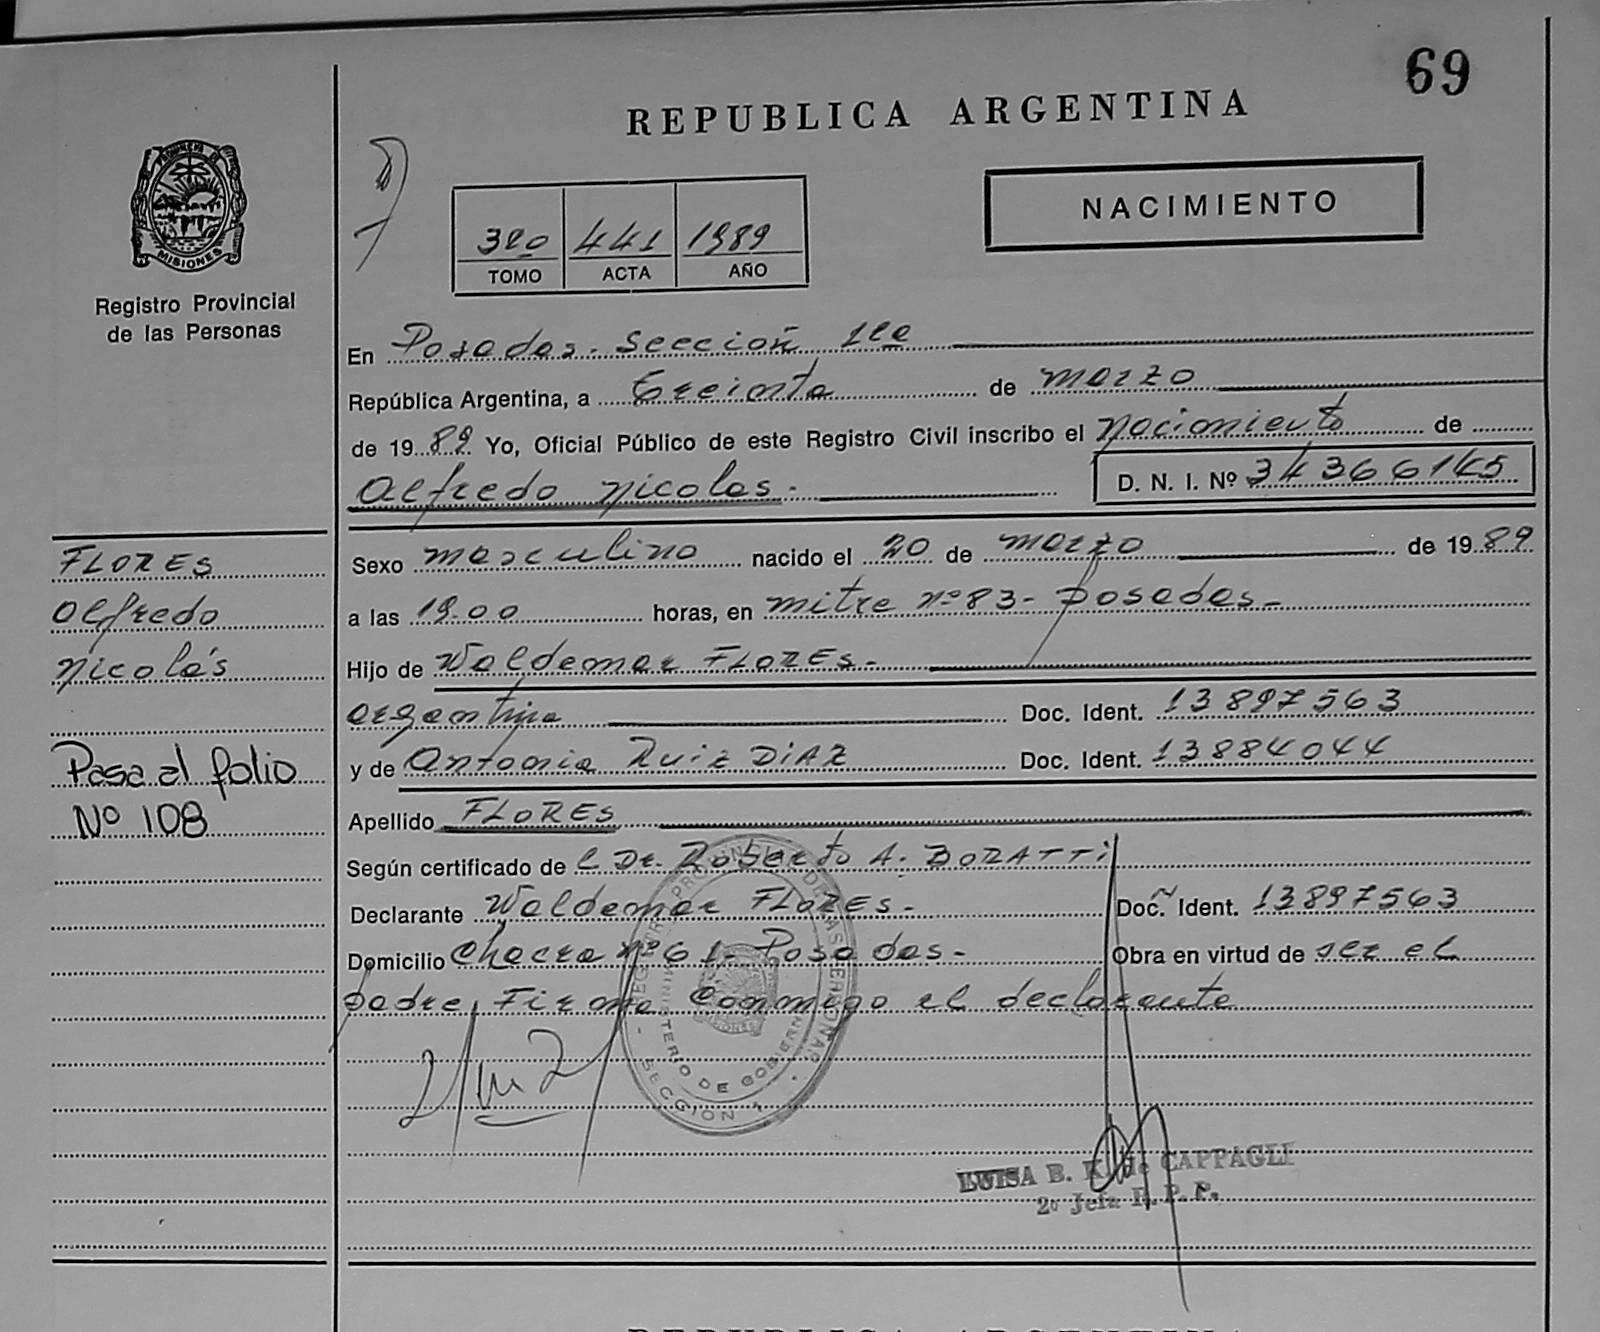 69
REPUBLICA ARGENTINA
NACIMIENTO
PROVINCIA DE
MISIONES
Registro Provincial
de las Personas
320 441 1989
TOMO ACTA AÑO
En Posadas. Sección 1ra
República Argentina, a treinta de marzo
de 1989 Yo, Oficial Público de este Registro Civil inscribo el nacimiento de
Alfredo Nicolas.- D. N. I. Nº 34366145
FLORES
Alfredo
Nicolás
Pasa al folio
Nº 108
Sexo masculino nacido el 20 de marzo de 1989
a las 19.00 horas, en mitre nº 83- Posadas.-
Hijo de Waldemar FLORES.-
argentina Doc. Ident. 13897563
y de Antonia RUIZ DIAZ Doc. Ident. 13884044
Apellido FLORES
Según certificado de l Dr. Roberto A. BORATTI
Declarante Waldemar FLORES.- Doc. Ident. 13897563
Domicilio Chacra nº 61- Posadas.- Obra en virtud de ser el
padre. Firma conmigo el declarante
MINISTERIO DE GOBIERNO
SECCION 1
MISIONES
LUISA B. CAPPAGLI
2º Jefa R.P.P.
REPUBLICA ARGENTINA